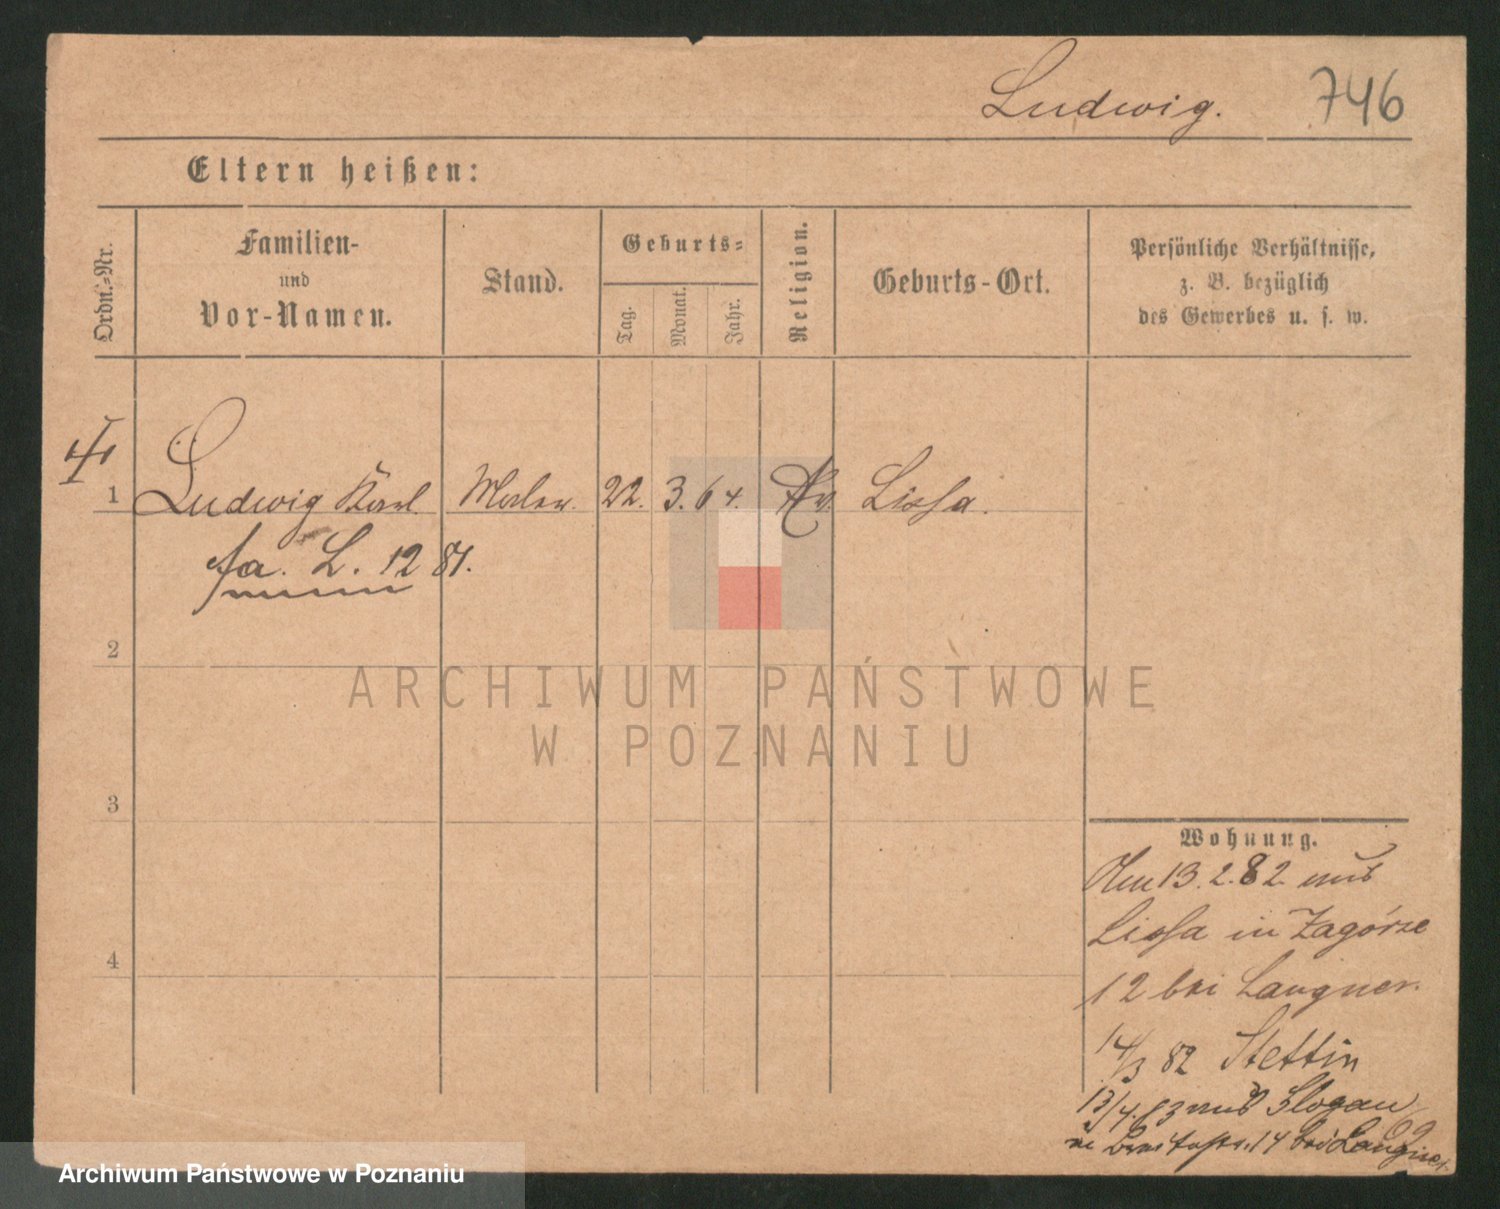 Ludwig. 746
Eltern heißen:
Ordn.-Nr.
Familien-
und
Vor-Namen.
Stand.
Geburts-
Tag.
Monat.
Jahr.
Religion.
Geburts-Ort.
Persönliche Verhältnisse,
z. B. bezüglich
des Gewerbes u. s. w.
1 Ludwig Karl Maler. 22. 3. 64. Ev. Lissa.
fa. L. 12 81.
2
3
4
Wohnung.
Am 13. 2. 82 aus
Lissa in Zagórze
12 bei Langner.
14/3 82 Stettin
13/4. 83 aus Glogau
in 14 bei Langner
ARCHIWUM PAŃSTWOWE
W POZNANIU
Archiwum Państwowe w Poznaniu